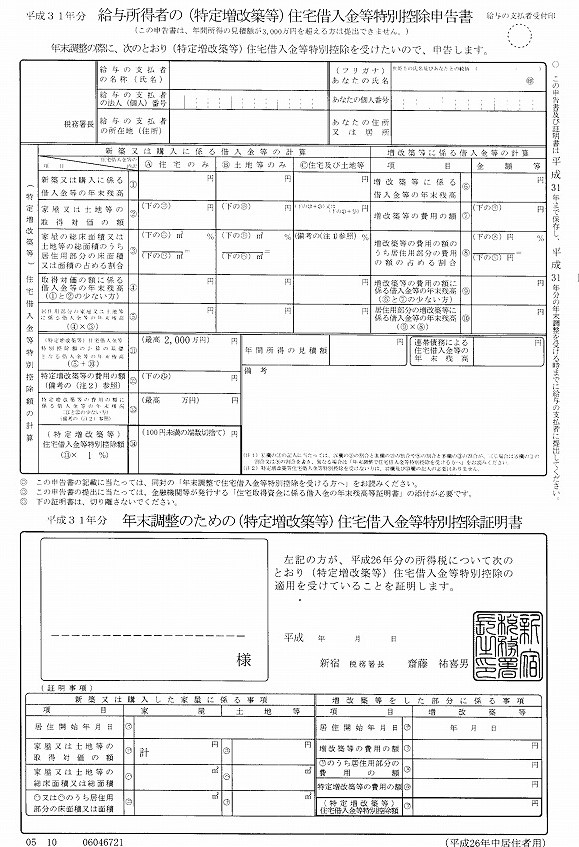 平成３１年分 給与所得者の（特定増改築等）住宅借入金等特別控除申告書 給与の支払者受付印
（この申告書は、年間所得の見積額が3,000万円を超える方は提出できません。）
年末調整の際に、次のとおり（特定増改築等）住宅借入金等特別控除を受けたいので、申告します。
税務署長
給与の支払者の名称（氏名）
（フリガナ）あなたの氏名 ㊞
給与の支払者の法人（個人）番号
あなたの個人番号
給与の支払者の所在地（住所）
あなたの住所又は居所
○この申告書及び証明書は平成31年まで保存し、平成31年分の年末調整を受ける時までに給与の支払者に提出してください。
（特定増改築等）住宅借入金等特別控除額の計算
新築又は購入に係る借入金等の計算
増改築等に係る借入金等の計算
項目 Ⓐ住宅のみ Ⓑ土地等のみ Ⓒ住宅及び土地等
項目 金額等
新築又は購入に係る借入金等の年末残高 ① 円 円 円
増改築等に係る借入金等の年末残高 ⑥ 円
家屋又は土地等の取得対価の額 ②
増改築等の費用の額 ⑦
家屋の総床面積又は土地等の総面積のうち居住用部分の床面積又は面積の占める割合 ③ ㎡ ㎡ （備考の（注1）参照） %
増改築等の費用の額のうち居住用部分の費用の額の占める割合 ⑧
取得対価の額に係る借入金等の年末残高（①と②の少ない方） ④ 円 円 円
増改築等の費用の額に係る借入金等の年末残高（⑥と⑦の少ない方） ⑨ 円
居住用部分の家屋又は土地等に係る借入金等の年末残高（④×③） ⑤
居住用部分の増改築等に係る借入金等の年末残高（⑨×⑧） ⑩
（特定増改築等）住宅借入金等特別控除額の計算の基礎となる借入金等の年末残高（⑤+⑩） ⑪ （最高 2,000万円） 円
年間所得の見積額 円
連帯債務による住宅借入金等の年末残高 円
特定増改築等の費用の額（備考の（注2）参照） ⑫ 円
備考
⑬ （最高 万円） 円
（特定増改築等）住宅借入金等特別控除額（⑪× 1 %） ⑭ （100円未満の端数切捨て） 円
◎ この申告書の記載に当たっては、同封の「年末調整で住宅借入金等特別控除を受ける方へ」をお読みください。
◎ この申告書の提出に当たっては、金融機関等が発行する「住宅取得資金に係る借入金の年末残高等証明書」の添付が必要です。
◎ 下の証明書は、切り離さないでください。
平成３１年分 年末調整のための（特定増改築等）住宅借入金等特別控除証明書
様
左記の方が、平成26年分の所得税について次のとおり（特定増改築等）住宅借入金等特別控除の適用を受けていることを証明します。
平成 年 月 日
新宿 税務署長 齋藤 祐喜男
新宿税務署長之印
（証明事項）
新築又は購入した家屋に係る事項
増改築等をした部分に係る事項
項目 家屋 土地等
項目 増改築等
居住開始年月日
居住開始年月日 年 月 日
家屋又は土地等の取得対価の額 計 円 円
増改築等の費用の額 円
家屋又は土地等の総床面積又は総面積 ㎡ ㎡
のうち居住用部分の費用の額 円
のうち居住用部分の床面積又は面積 ㎡ ㎡
特定増改築等の費用の額 円
（特定増改築等）住宅借入金等特別控除額 円
05 10 06046721
（平成26年中居住者用）